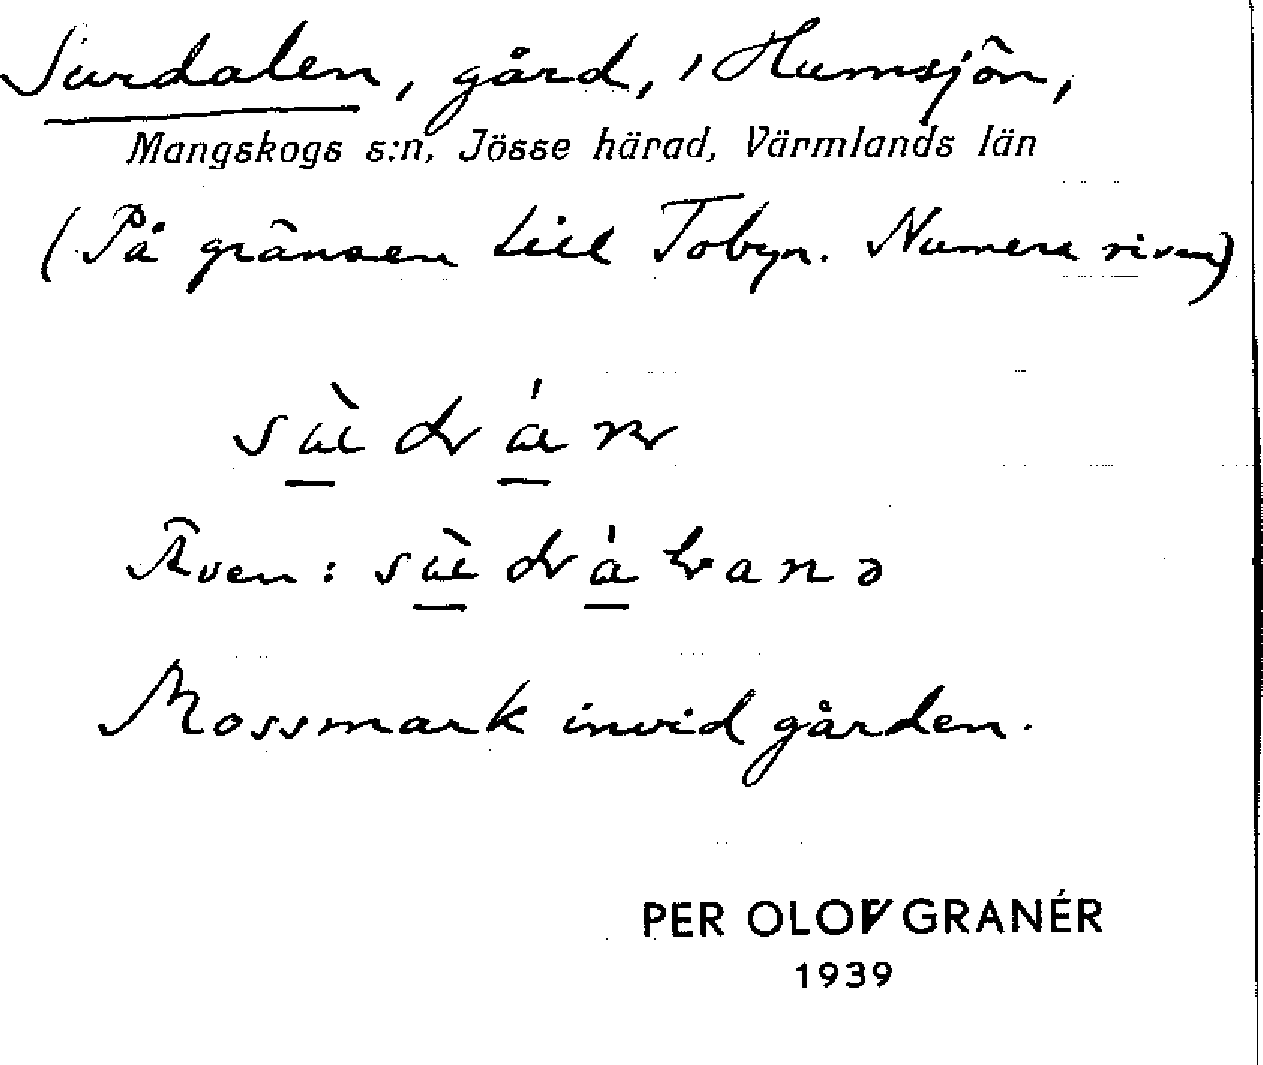 Surdalen, gård, i Humsjön,
Mangskogs s:n, Jösse härad, Värmlands län
(På gränsen till Tobyn. Numera riven)
Även:
Mossmark invid gården.
PER OLOV GRANÉR
1939